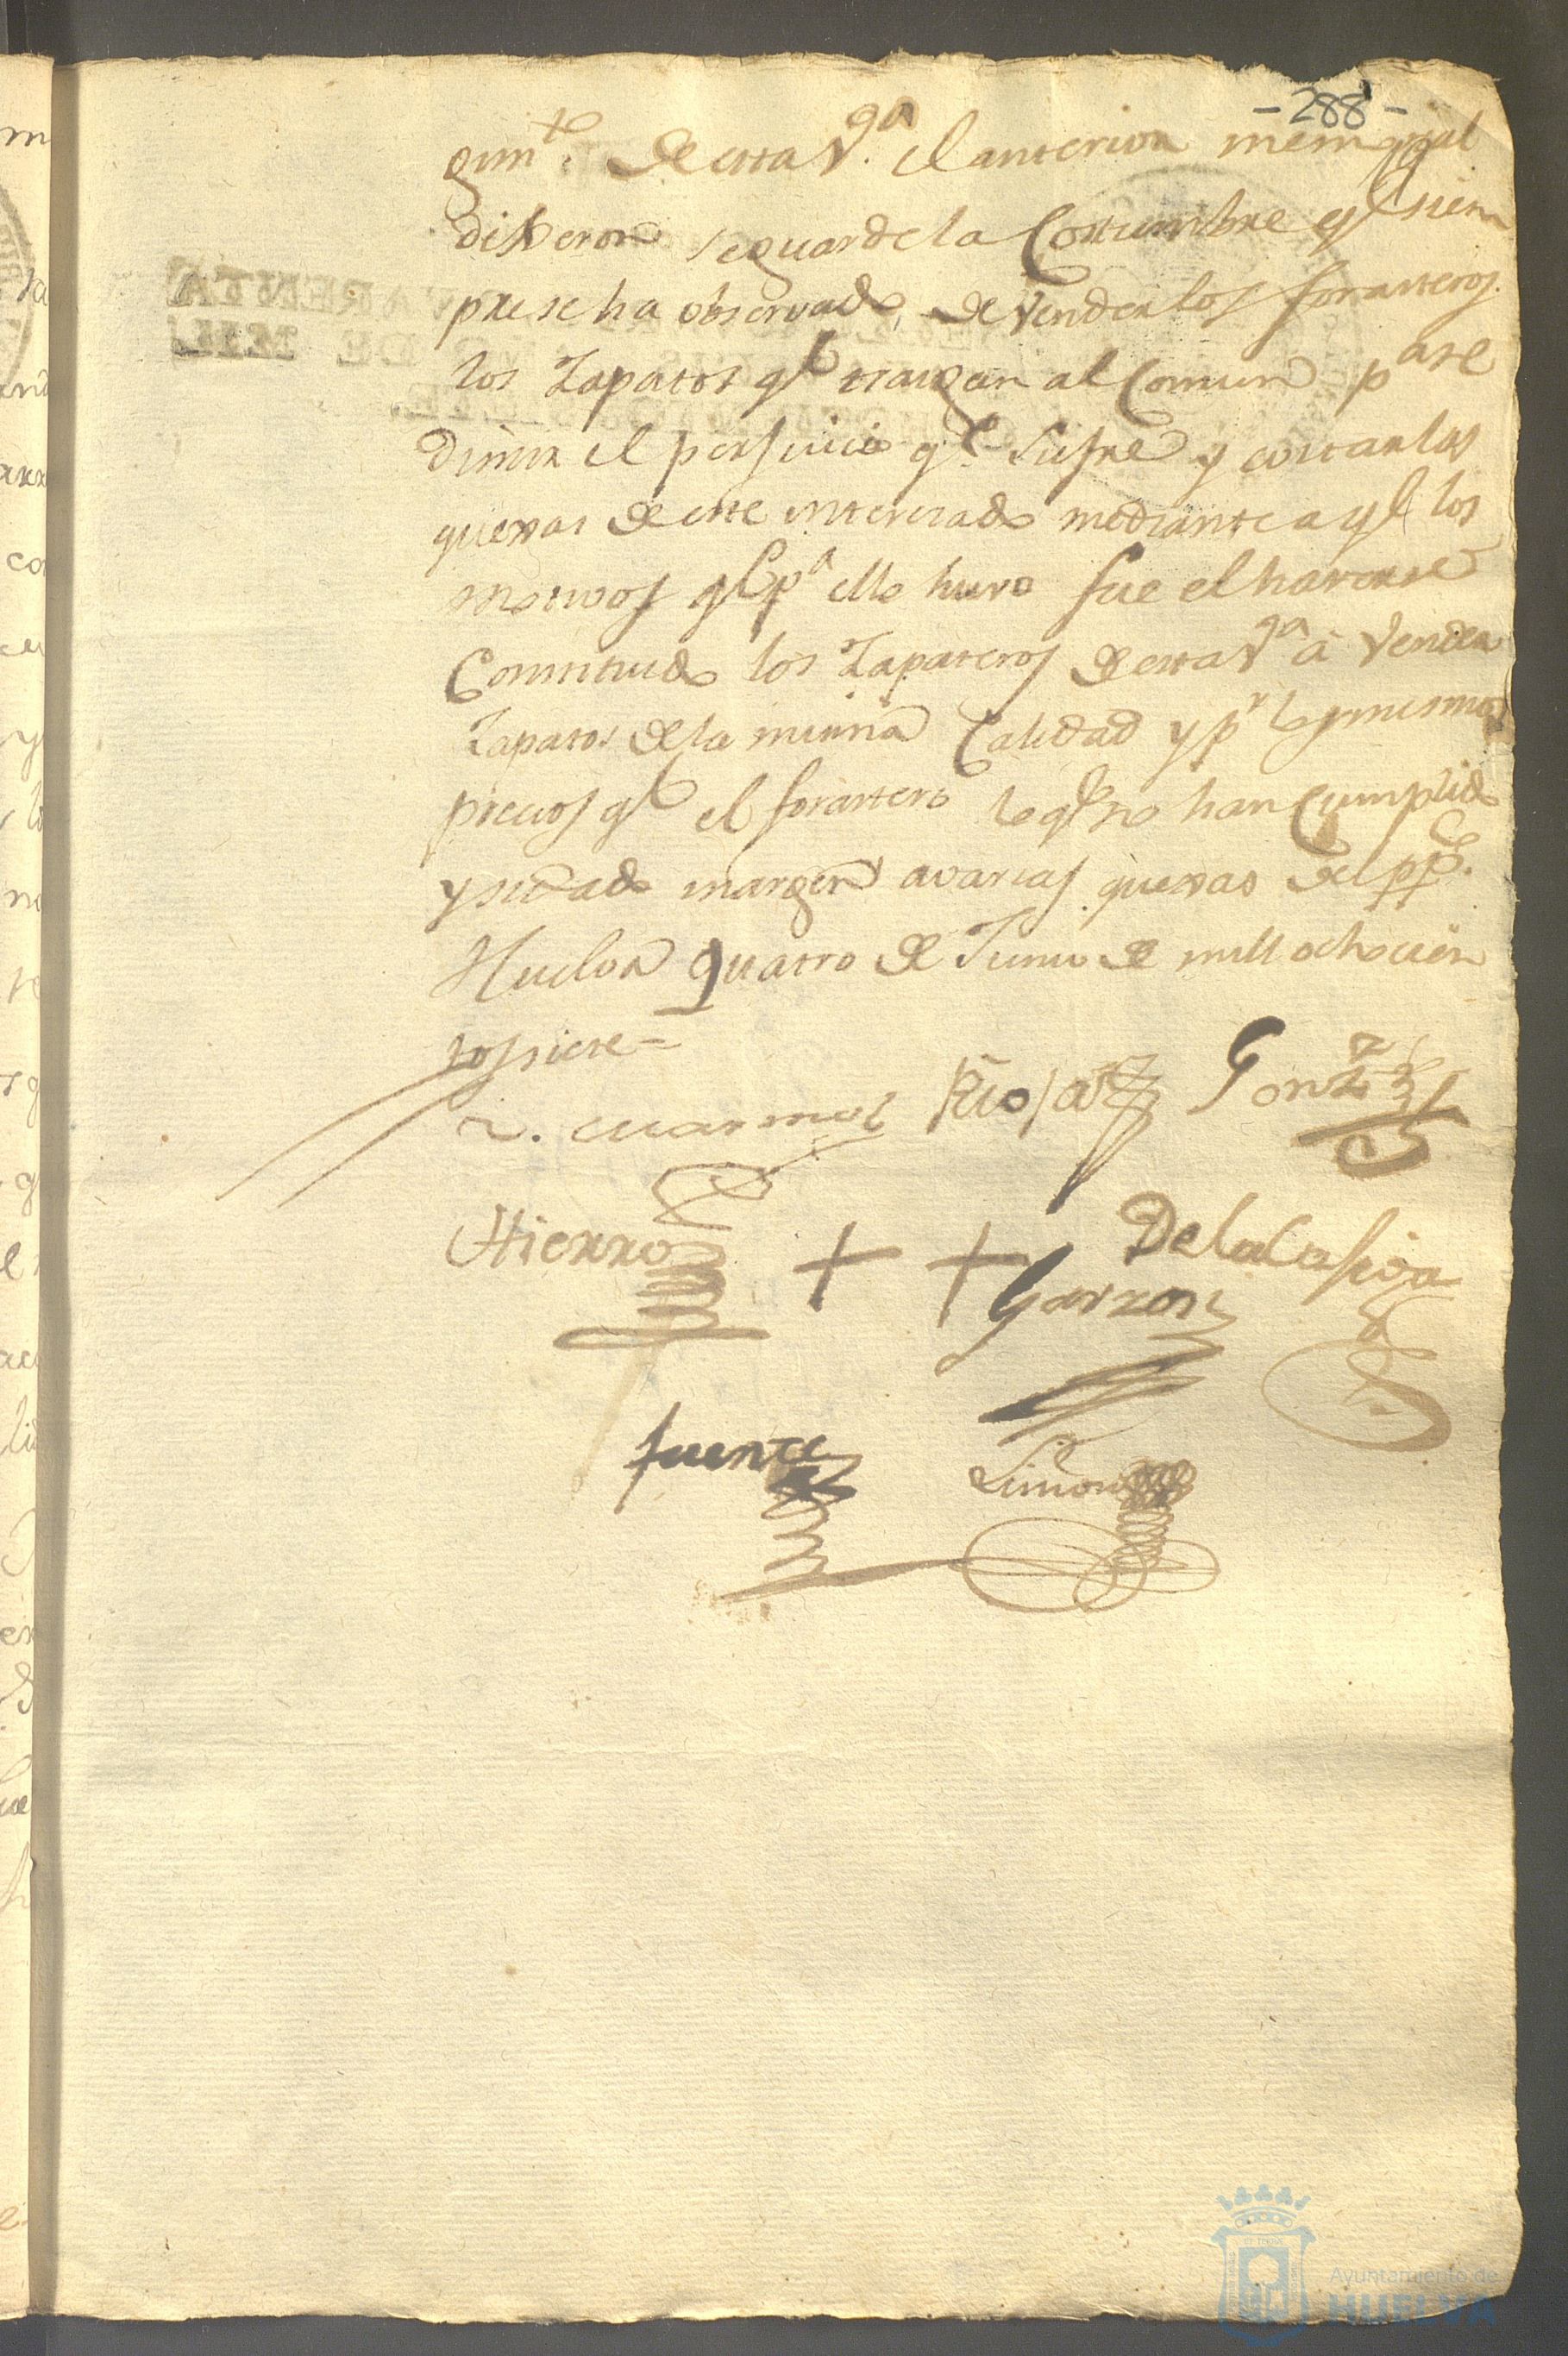 -288-
gim.to de esta V.ª el anterior memorial
dixeron se guarde la Costumbre qe siem
pre se ha observado, de vender los forasteros
los Zapatos qe traigan al Comun pª re
dimir el perjuicio qe sufre y cortar las
quexas de este interesado mediante a qe los
motivos qe pª ello huvo fue el haverse
Constituido los Zapateros de esta Vª á Vender
Zapatos de la misma Calidad y pr los mismos
precios qe el forastero lo qe no han Cumplido
y si dado margen a varias quexas del pp.co
Huelva quatro de Junio de mill ochocien
tos siete=
Gonz
Hierro + + De la Corte
Garzon
fuente Limon
Ayuntamiento de
HUELVA